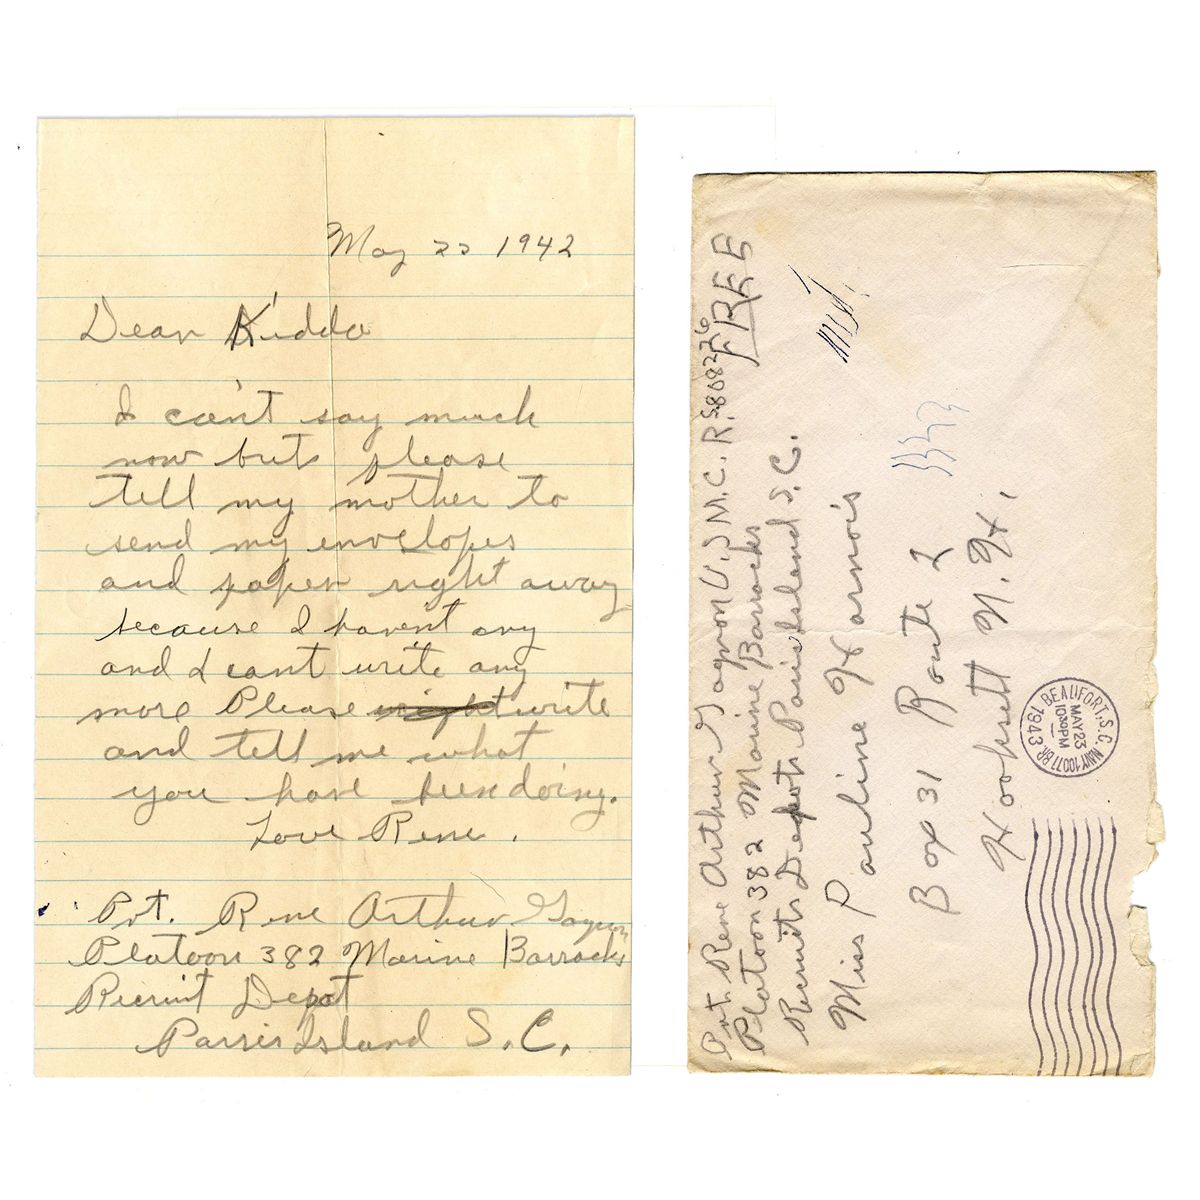 May 22 1942
Dear Kiddo
I can't say much
now but please
tell my mother to
send my envelopes
and paper right away
because I haven't any
and I cant write any
more Please write
and tell me what
you have been doing.
Love Rene.
Pvt. Rene Arthur Gagnon
Platoon 382 Marine Barracks
Recruit Depot
Parris Island S.C.
Pvt. Rene Arthur Gagnon U.S M.C.R. 
FREE
Platoon 382 Marine Barracks
Recruits Depot Paris Island S.C.
Miss Pauline Harnois
Box 31 Route 2
Hooksett N.H.
BEAUFORT, S.C. NAVY 10077 BR.
MAY 23
10 30 PM
1943